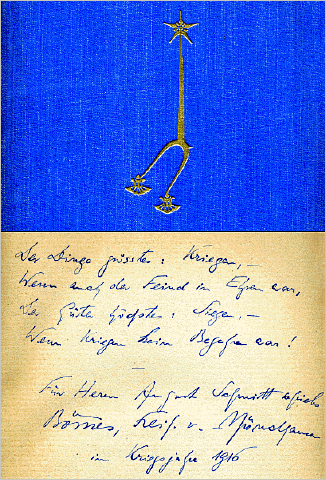 Der Dinge grösster: Kriegen, –
Wenn auch der Feind in Ehren war,
Der Güter höchstes: Siegen, –
Wenn Kriegen kein Begehren war!
–
Für Herrn August Schmitt
Börries, Freih. v. Münchhausen
im Kriegsjahre 1916